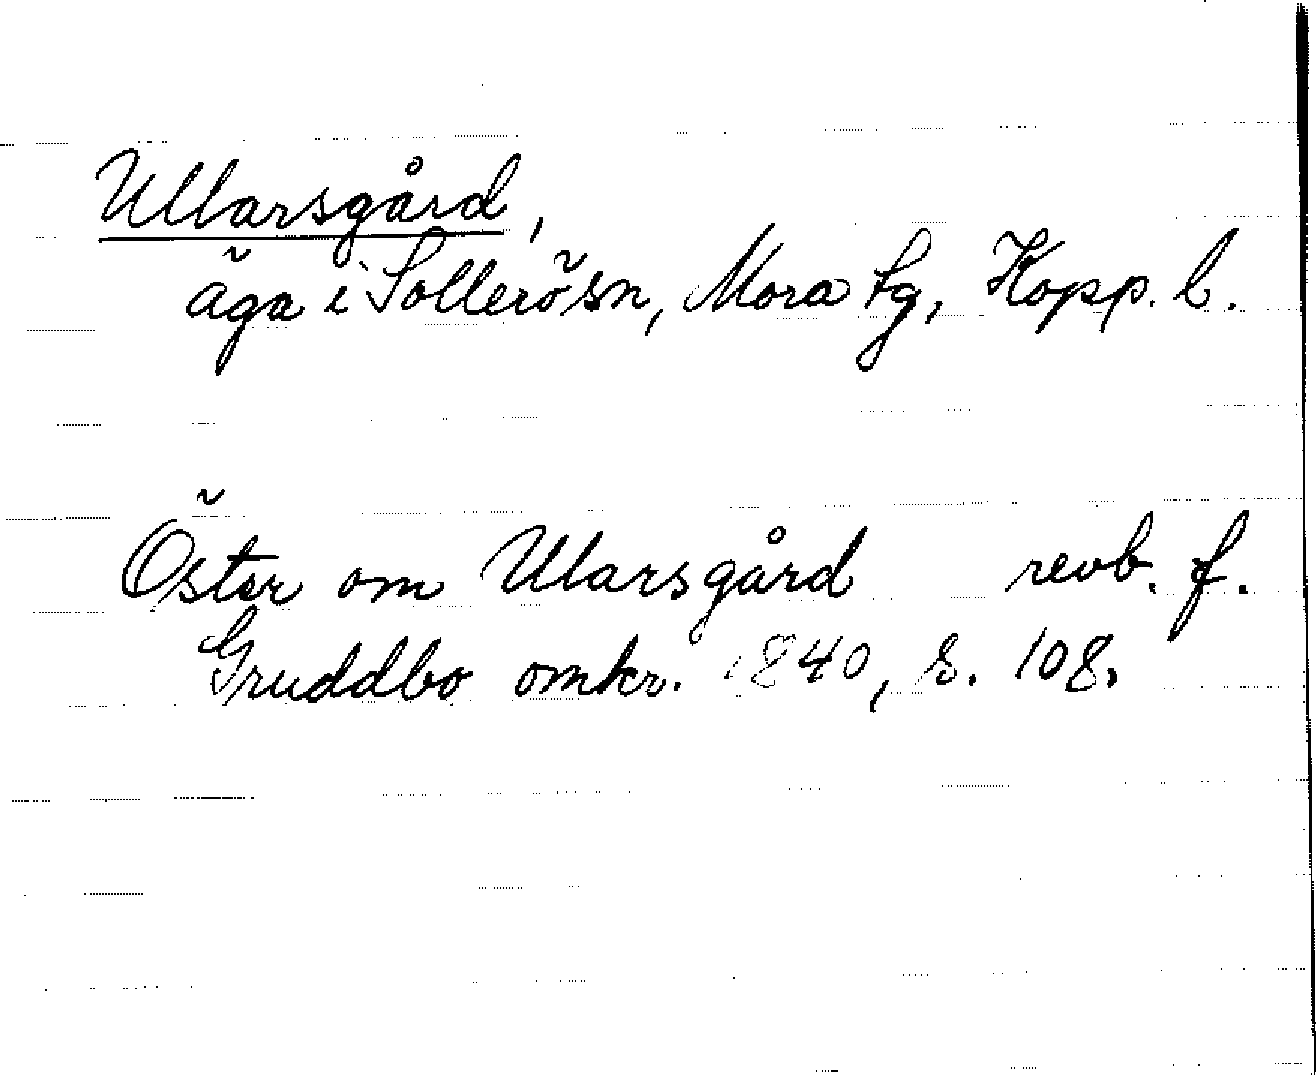 Ullarsgård,
äga i Sollerö sn, Mora tg, Kopp. l.
Öster om Ularsgård revb. f.
Gruddbo omkr. 1840, s. 108.